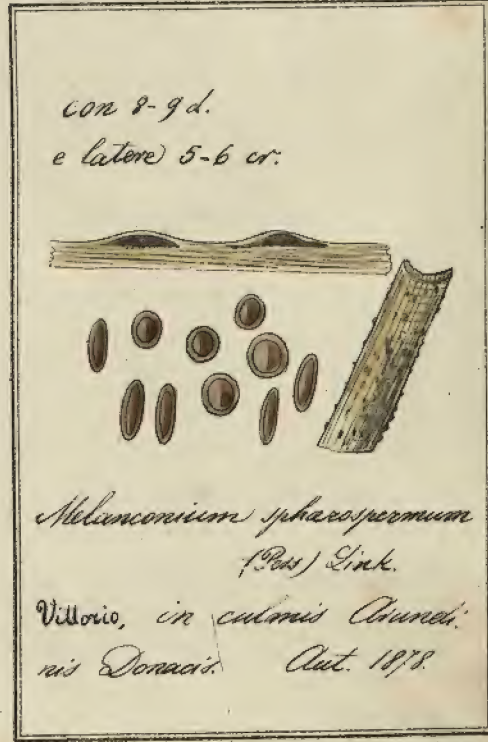 con 8-9 d.
e latere 5-6 cr.
Melanconium sphærospermum
(Pers) Link.
Vittorio, in culmis Arundi-
nis Donacis. Aut. 1878.